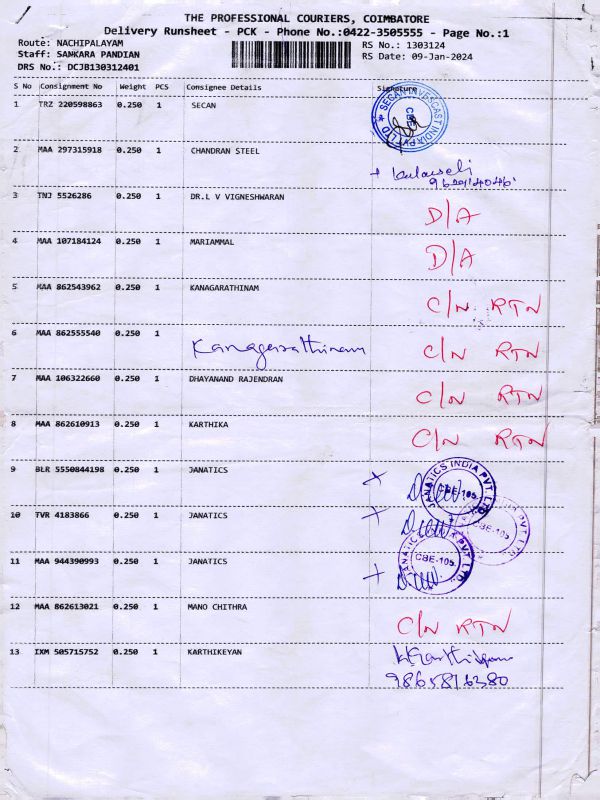 THE PROFESSIONAL COURIERS, COIMBATORE
Delivery Runsheet - PCK - Phone No.:0422-3505555 - Page No.:1
Route: NACHIPALAYAM
RS No.: 1303124
Staff: SANKARA PANDIAN
RS Date: 09-Jan-2024
DRS No.: DCJB130312401
S No Consignment No Weight PCS Consignee Details Signature
1 TRZ 220598863 0.250 1 SECAN
SECAN INVESCAST INDIA PVT LTD
CBE
2 MAA 297315918 0.250 1 CHANDRAN STEEL
3 TNJ 5526286 0.250 1 DR.L V VIGNESHWARAN D/A
4 MAA 107184124 0.250 1 MARIAMMAL D/A
5 MAA 862543962 0.250 1 KANAGARATHINAM C/N RTN
6 MAA 862555540 0.250 1 Kanagarathinam C/N RTN
7 MAA 106322660 0.250 1 DHAYANAND RAJENDRAN C/N RTN
8 MAA 862610913 0.250 1 KARTHIKA C/N RTN
9 BLR 5550844198 0.250 1 JANATICS
JANATICS INDIA PVT. LTD
CBE-105.
10 TVR 4183866 0.250 1 JANATICS
CBE-105.
11 MAA 944390993 0.250 1 JANATICS
CBE-105.
12 MAA 862613021 0.250 1 MANO CHITHRA C/N RTN
13 IXM 505715752 0.250 1 KARTHIKEYAN
9865816380